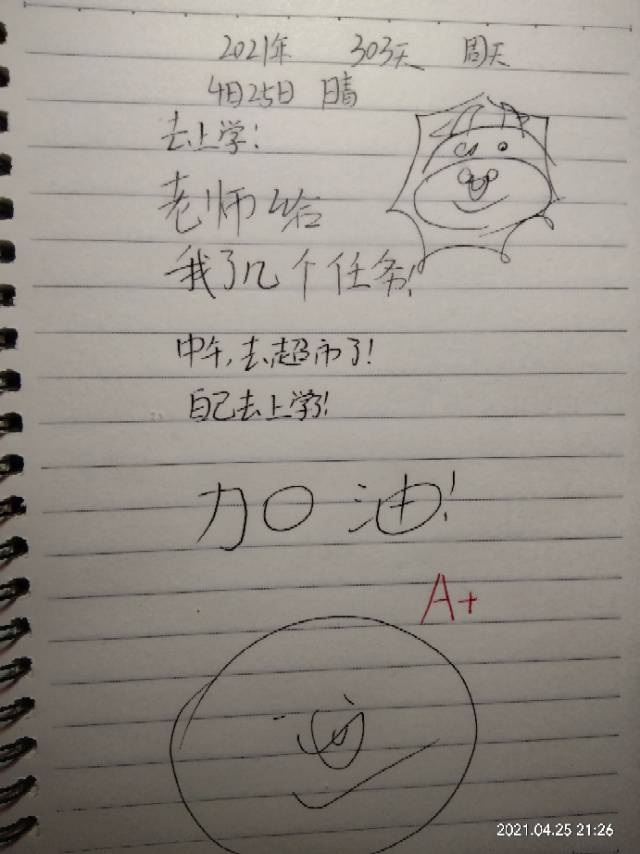 2021年 303天 周天
4月25日 晴
去上学!
老师给
我了几个任务!
中午,去超市了!
自己去上学!
加油!
A+
2021.04.25 21:26